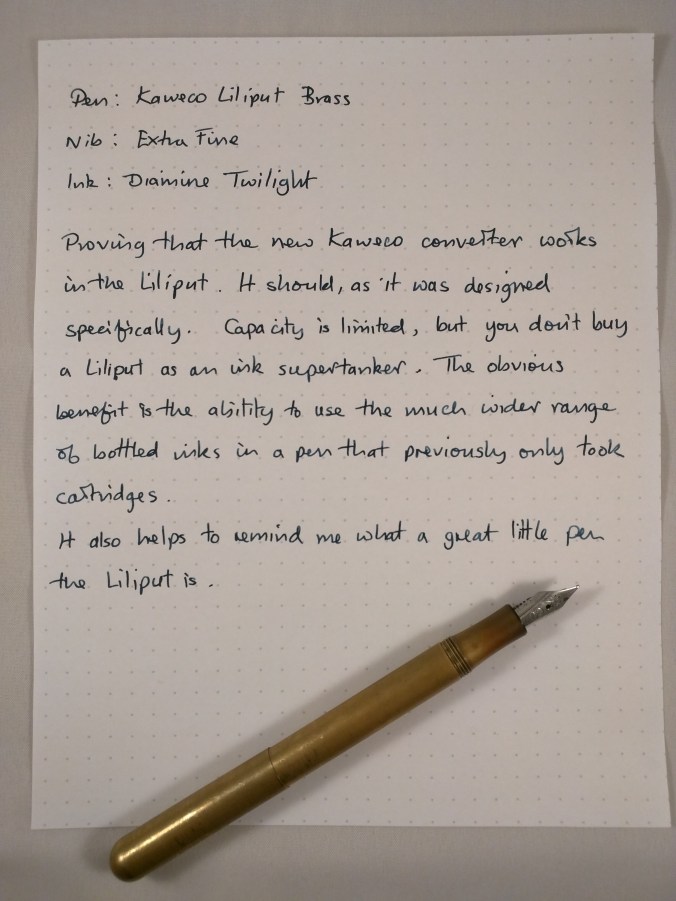 Pen: Kaweco Liliput Brass
Nib: Extra Fine
Ink: Diamine Twilight
Proving that the new Kaweco converter works
in the Liliput. It should, as it was designed
specifically. Capacity is limited, but you don't buy
a Liliput as an ink supertanker. The obvious
benefit is the ability to use the much wider range
of bottled inks in a pen that previously only took
cartridges.
It also helps to remind me what a great little pen
the Liliput is.